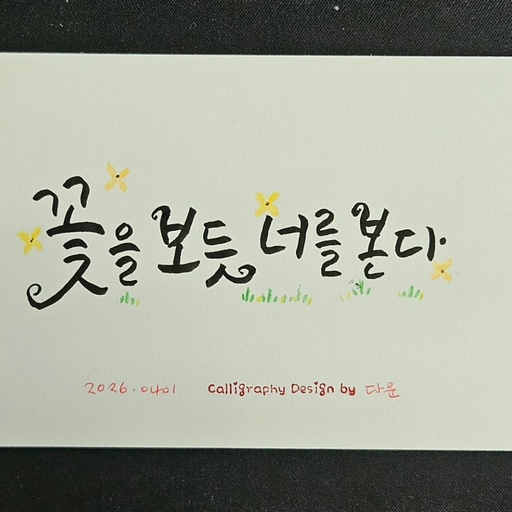 꽃을 보듯 너를 본다.
2026.0401 Calligraphy Design by 다운